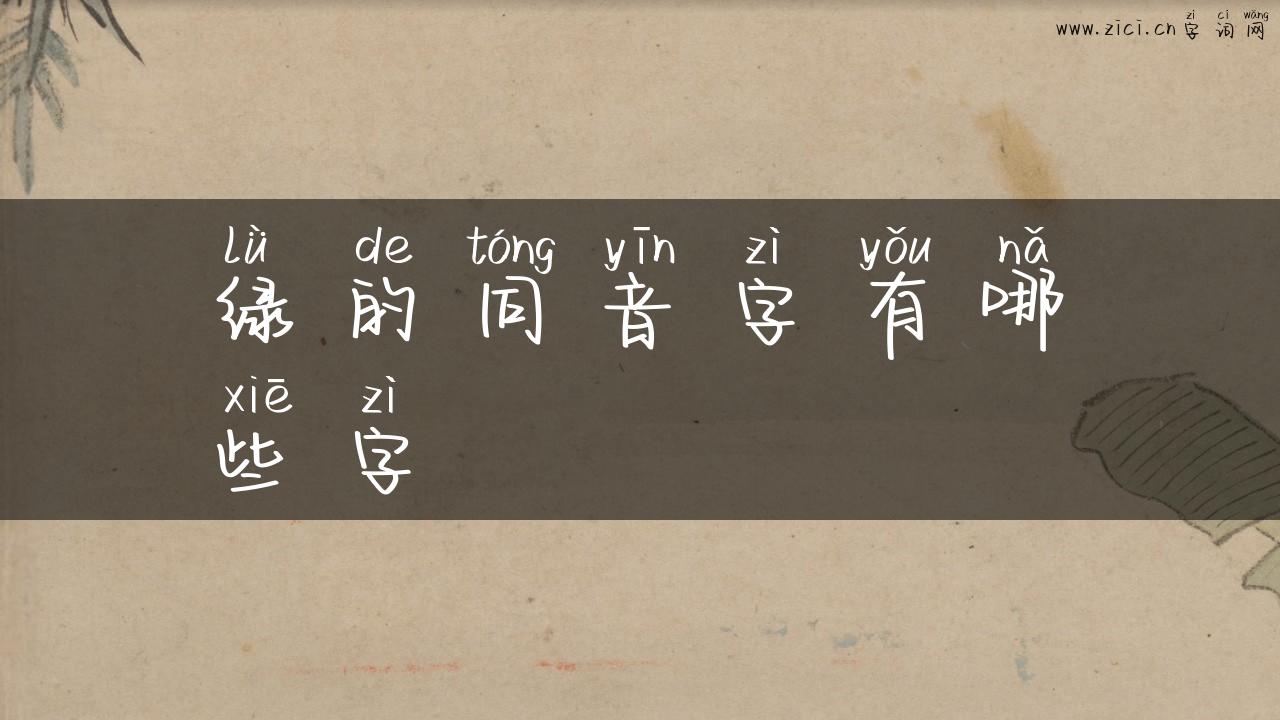 zì cí wǎng
www.zici.cn 字词网
lǜ de tóng yīn zì yǒu nǎ
绿的同音字有哪
xiē zì
些字